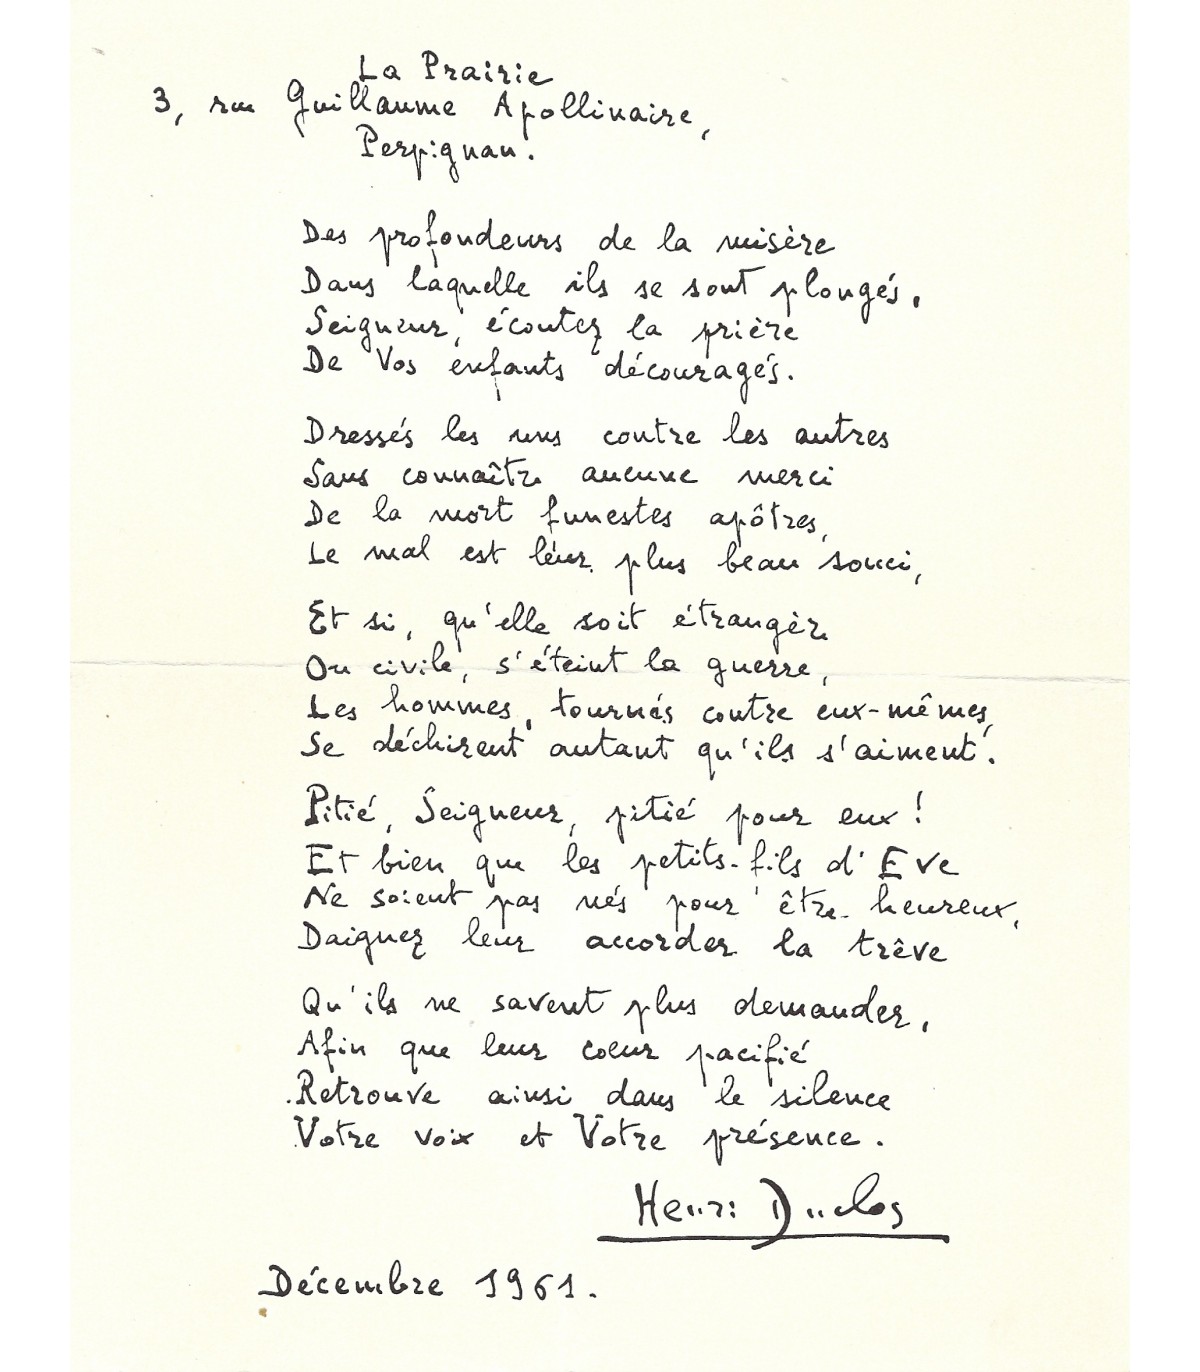 La Prairie
3, rue Guillaume Apollinaire,
Perpignan.
Des profondeurs de la misère
Dans laquelle ils se sont plongés,
Seigneur, écoutez la prière
De Vos enfants découragés.
Dressés les uns contre les autres
Sans connaître aucune merci
De la mort funestes apôtres,
Le mal est leur plus beau souci,
Et si, qu'elle soit étrangère
Ou civile, s'éteint la guerre,
Les hommes, tournés contre eux-mêmes,
Se déchirent autant qu'ils s'aiment.
Pitié, Seigneur, pitié pour eux !
Et bien que les petits-fils d'Eve
Ne soient pas nés pour être heureux,
Daignez leur accorder la trêve
Qu'ils ne savent plus demander,
Afin que leur coeur pacifié
Retrouve ainsi dans le silence
Votre voix et Votre présence.
Henri Duclos
Décembre 1961.